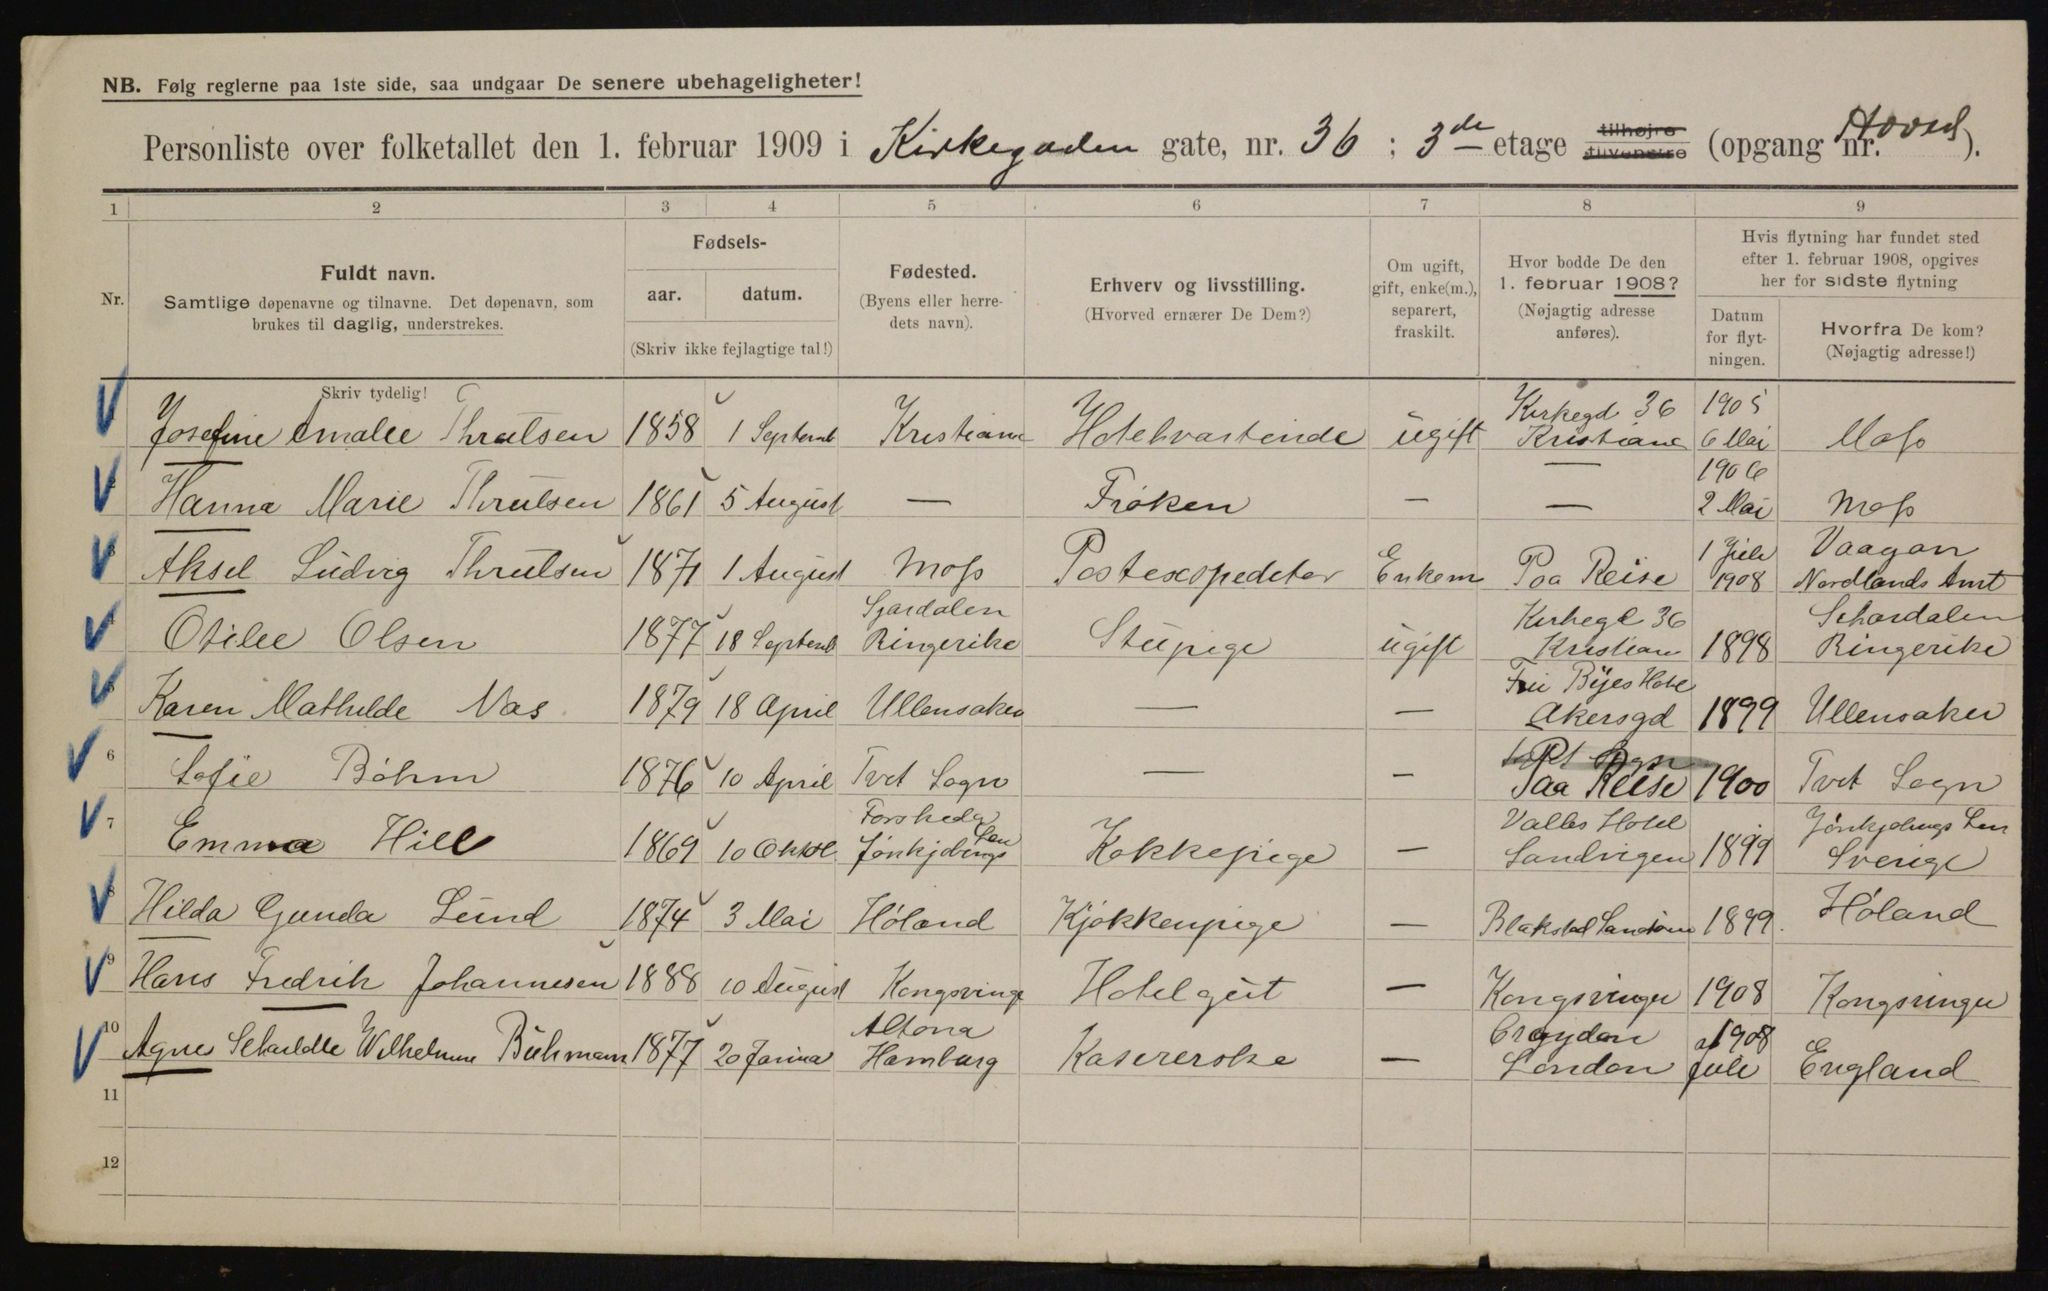 NB. Følg reglerne paa 1ste side, saa undgaar De senere ubehageligheter!
Personliste over folketallet den 1. februar 1909 i Kirkegaden gate, nr. 36 ; 3de etage tilhøjre tilvenstre (opgang nr. Hoved ).
1 2 3 4 5 6 7 8 9
Nr.
Fuldt navn.
Samtlige døpenavne og tilnavne. Det døpenavn, som
brukes til daglig, understrekes.
Fødsels-
aar. datum.
(Skriv ikke fejlagtige tal!)
Fødested.
(Byens eller herre-
dets navn).
Erhverv og livsstilling.
(Hvorved ernærer De Dem?)
Om ugift,
gift, enke(m.),
separert,
fraskilt.
Hvor bodde De den
1. februar 1908?
(Nøjagtig adresse
anføres).
Hvis flytning har fundet sted
efter 1. februar 1908, opgives
her for sidste flytning
Datum
for flyt-
ningen.
Hvorfra De kom?
(Nøjagtig adresse!)
Skriv tydelig!
Kirkegd 36 1905
Josefine Amalie Thrulsen 1858 1 Septemb Kristiane Hotelvartinde ugift Kristiane 6 Mai Moss
1906
Hanna Marie Thrulsen 1861 5 August — Frøken — — 2 Mai Moss
1 Vaagan
Aksel Ludvig Thrulsen 1871 1 August Moss Postexspeditør Enkem Paa Reise 1908 Nordlands Amt
Kirkegd 36
4 Otilie Olsen 1877 18 Septemb Ringerike Stupige ugift Kristian 1898 Ringerike
Byes Hotel
Karen Mathilde Nas 1879 18 April Ullensaker — — Akersgd 1899 Ullensaker
6 Sofie Bøhm 1876 10 April Tvet Sogn — — Paa Reise 1900 Tvet Sogn
Forsheda Len Valles Hotel Jönkjöbings Len
7 Emma Hill 1869 10 Oktbe Jönkjöbings Kokkepige — Sandvigen 1899 Sverige
8 Hilda Gunda Lund 1874 3 Mai Høland Kjøkkenpige — Blakstad 1899. Høland
9 Hans Fredrik Johannesen 1888 10 August Kongsvinge Hotelgut — Kongsvinger 1908 Kongsvinger
Altona Croydon 1908
10 Agnes Wilhelmine Buhmann 1877 20 Janua Hamburg Kasererske — London Juli England
11
12